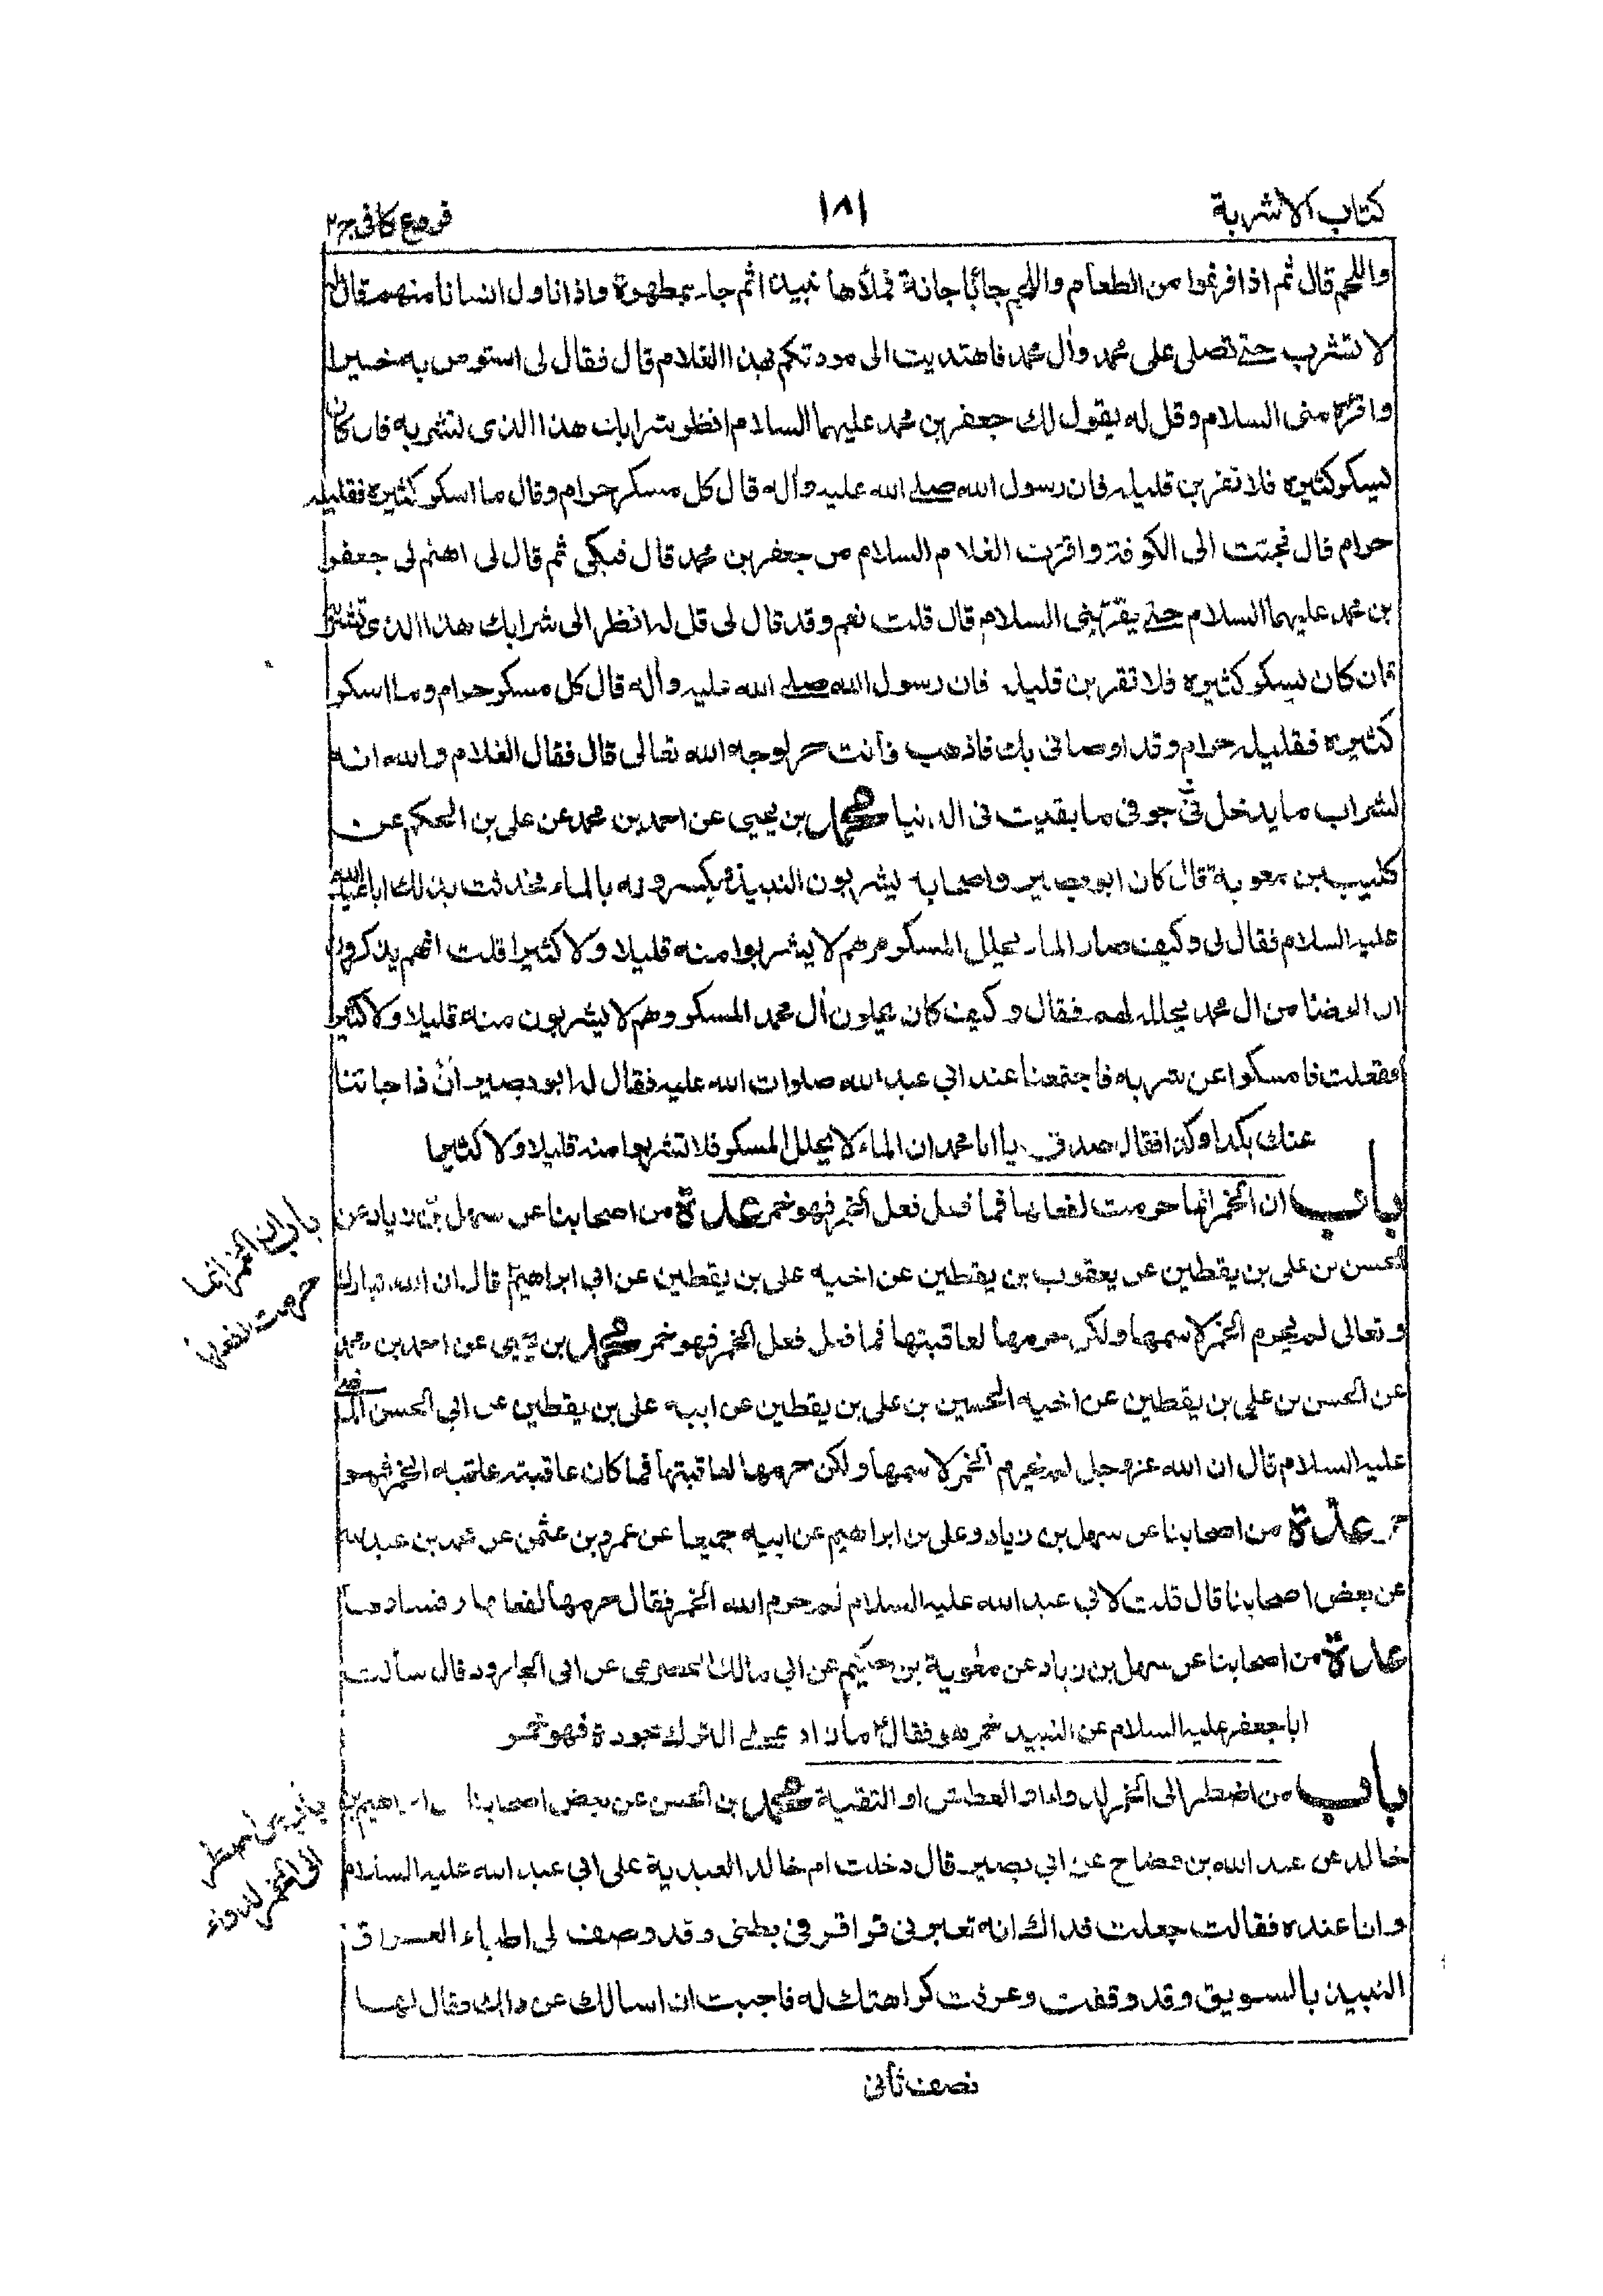 كتاب الاشربة
١٨١
فروع كافى ج٢
واللحم قال ثم اذا فرغوا من الطعام واللحم جائبا جانة فملأها نبيذا ثم جاء بمطهرة واذا ناول انسانا منهم قال له
لا تشرب حتى تصلى على محمد وآل محمد فاهتديت الى مودتكم بهذا الغلام قال فقال لى استوص به خيرا
واقرئه منى السلام وقل له يقول لك جعفر بن محمد عليهما السلام انظر شرابك هذا الذى تشربه فان كان
يسكر كثيره فلا تقربن قليله فان رسول الله صلى الله عليه وآله قال كل مسكر حرام وقال ما اسكر كثيره فقليله
حرام قال فجئت الى الكوفة واقرئت الغلام السلام من جعفر بن محمد قال فبكى ثم قال لى اهتم لى جعفر
بن محمد عليهما السلام حتى يقرئنى السلام قال قلت نعم وقد قال لى قل له انظر الى شرابك هذا الذى تشربه
فان كان يسكر كثيره فلا تقربن قليله فان رسول الله صلى الله عليه وآله قال كل مسكر حرام وما اسكر
كثيره فقليله حرام وقد اوصانى بك فاذهب فأنت حر لوجه الله تعالى قال فقال الغلام والله انه
لشراب ما يدخل فى جوفى ما بقيت فى الدنيا محمد بن يحيى عن احمد بن محمد عن على بن الحكم عن
كليب بن معوية قال كان ابو بصير واصحابه يشربون النبيذ يكسرونه بالماء فحدثت بذلك ابا عبد الله
عليه السلام فقال لى وكيف صار الماء يحلل المسكر مرهم لا يشربوا منه قليلا ولا كثيرا قلت انهم يذكرون
ان الرضا من ال محمد يحلله لهم فقال وكيف كان يحلون آل محمد المسكر وهم لا يشربون منه قليلا ولا كثيرا
ففعلت فامسكوا عن شربه فاجتمعنا عند ابي عبد الله صلوات الله عليه فقال له ابو بصير ان ذا جائنا
عنك بكذا وكذا فقال صدق يا ابا محمد ان الماء لا يحلل المسكر فلا تشربوا منه قليلا ولا كثيرا
باب ان الخمر انما حرمت لفعلها فما فعل فعل الخمر فهو خمر عدة من اصحابنا عن سهل بن زياد عن
الحسن بن على بن يقطين عن يعقوب بن يقطين عن اخيه على بن يقطين عن ابى ابراهيم قال ان الله تبارك
وتعالى لم يحرم الخمر لاسمها ولكن حرمها لعاقبتها فما فعل فعل الخمر فهو خمر محمد بن يحيى عن احمد بن محمد
عن الحسن بن على بن يقطين عن اخيه الحسين بن على بن يقطين عن ابيه على بن يقطين عن ابي الحسن الماضى
عليه السلام قال ان الله عز وجل لم يحرم الخمر لاسمها ولكن حرمها لعاقبتها فما كان عاقبته عاقبة الخمر فهو
خمر عدة من اصحابنا عن سهل بن زياد وعلى بن ابراهيم عن ابيه جميعا عن عمرو بن عثمن عن محمد بن عبد الله
عن بعض اصحابنا قال قلت لابي عبد الله عليه السلام لم حرم الله الخمر فقال حرمها لفعلها وفسادها
عدة من اصحابنا عن سهل بن زياد عن معوية بن حكيم عن ابي مالك الحضرمى عن ابى الجارود قال سألت
ابا جعفر عليه السلام عن النبيذ خمر هو فقال ما زاد على الترك جودة فهو خمر
باب من اضطر الى الخمر للدواء او العطش او التقية محمد بن الحسن عن بعض اصحابنا ابراهيم بن
خالد عن عبد الله بن وضاح عن ابي بصير قال دخلت ام خالد العبدية على ابى عبد الله عليه السلام
وانا عنده فقالت جعلت فداك انه تعترينى قراقر فى بطنى وقد وصف لى اطباء العراق
النبيذ بالسويق وقد وقفت وعرفت كراهتك له فاحببت ان اسالك عن ذلك فقال لها
باب ان الخمر انما
حرمت لفعلها
باب من اضطر
الى الخمر للدواء
نصف ثانى